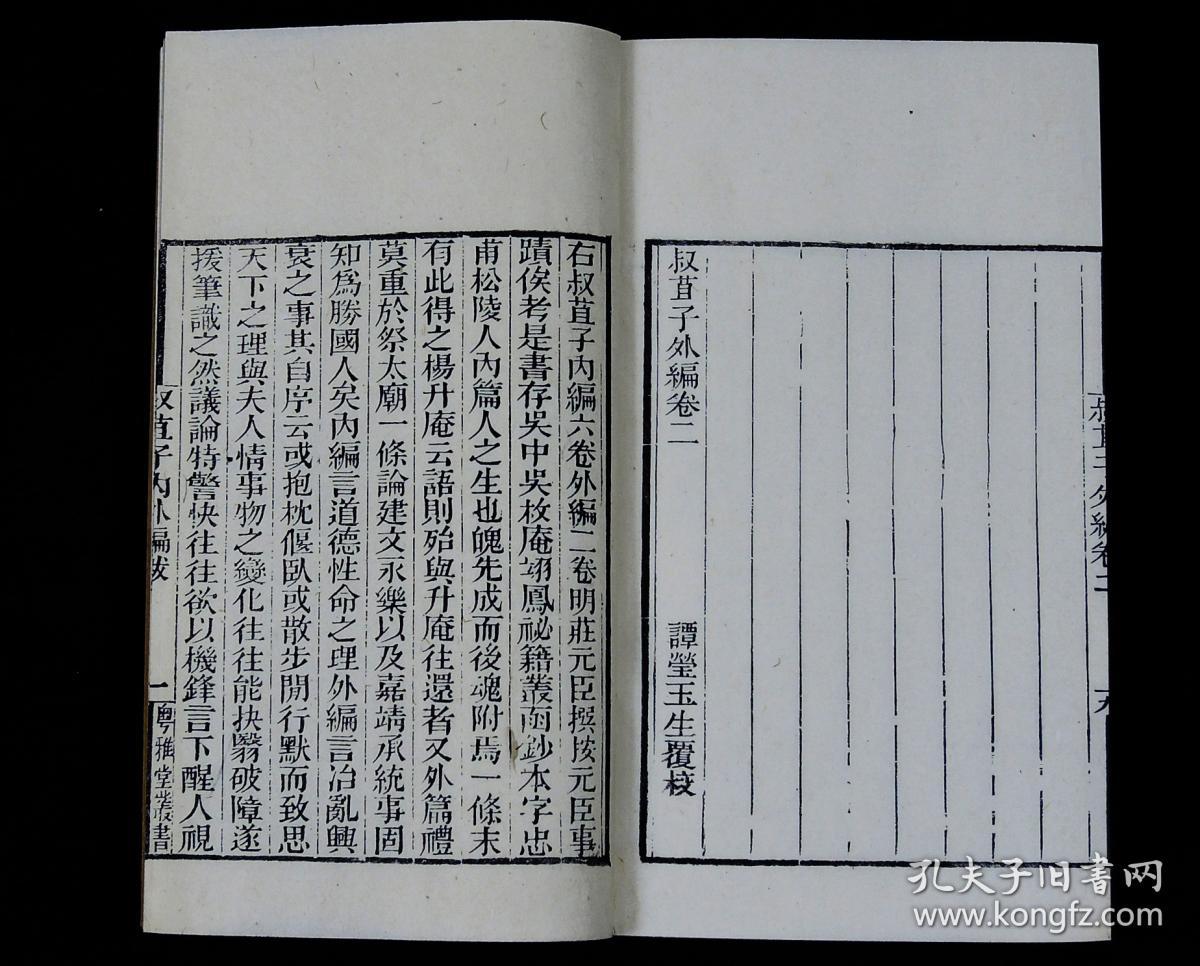 叔苴子外編卷二
九
叔苴子外編卷二
譚瑩玉生覆校
右叔苴子內編六卷外編二卷明莊元臣撰按元臣事
蹟俟考是書存吳中吳枚庵翊鳳祕籍叢函鈔本字忠
甫松陵人內篇人之生也魄先成而後魂附焉一條末
有此得之楊升庵云語則殆與升庵往還者又外篇禮
莫重於祭太廟一條論建文永樂以及嘉靖承統事固
知爲勝國人矣內編言道德性命之理外編言治亂興
衰之事其自序云或抱枕偃臥或散步閒行默而致思
天下之理與夫人情事物之變化往往能抉翳破障遂
援筆識之然議論特警快往往欲以機鋒言下醒人視
叔苴子內外編跋
一
粵雅堂叢書
孔夫子旧书网
www.kongfz.com